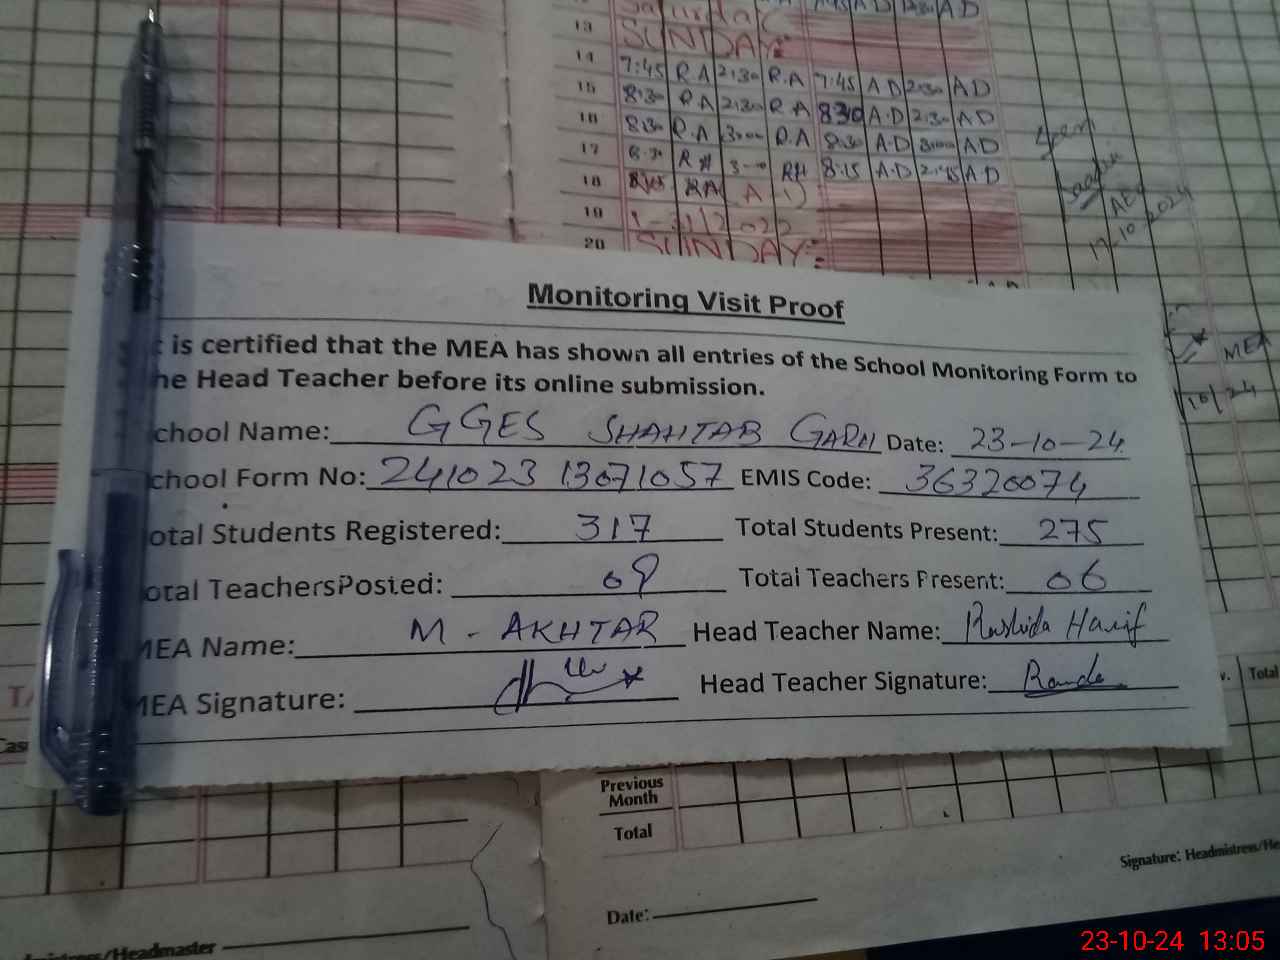 Saturday
13 SUNDAY:
14 7:45 RA 2:30 R.A 7:45 AD 2:30 AD
15 8:30 RA 2:30 RA 830 A.D 2:30 AD
16 8:30 R.A 3:00 R.A 8:30 A.D 3:00 AD
17 8:30 RA 3-0 RH 8:15 A.D 2:45 AD
18 RA A
19
20 SUNDAY:
17-10-2024
Monitoring Visit Proof
is certified that the MEA has shown all entries of the School Monitoring Form to
he Head Teacher before its online submission.
chool Name: GGES SHAHTAB GARH Date: 23-10-24
chool Form No: 241023 13071057 EMIS Code: 36320074
otal Students Registered: 317 Total Students Present: 275
otal TeachersPosted: 09 Total Teachers Present: 06
MEA Name: M. AKHTAR Head Teacher Name: Rashida Hanif
MEA Signature: Head Teacher Signature:
MEA
10/24
Cas
v. Total
Previous
Month
Total
Signature: Headmistress/He
Date:
mistress/Headmaster
23-10-24 13:05